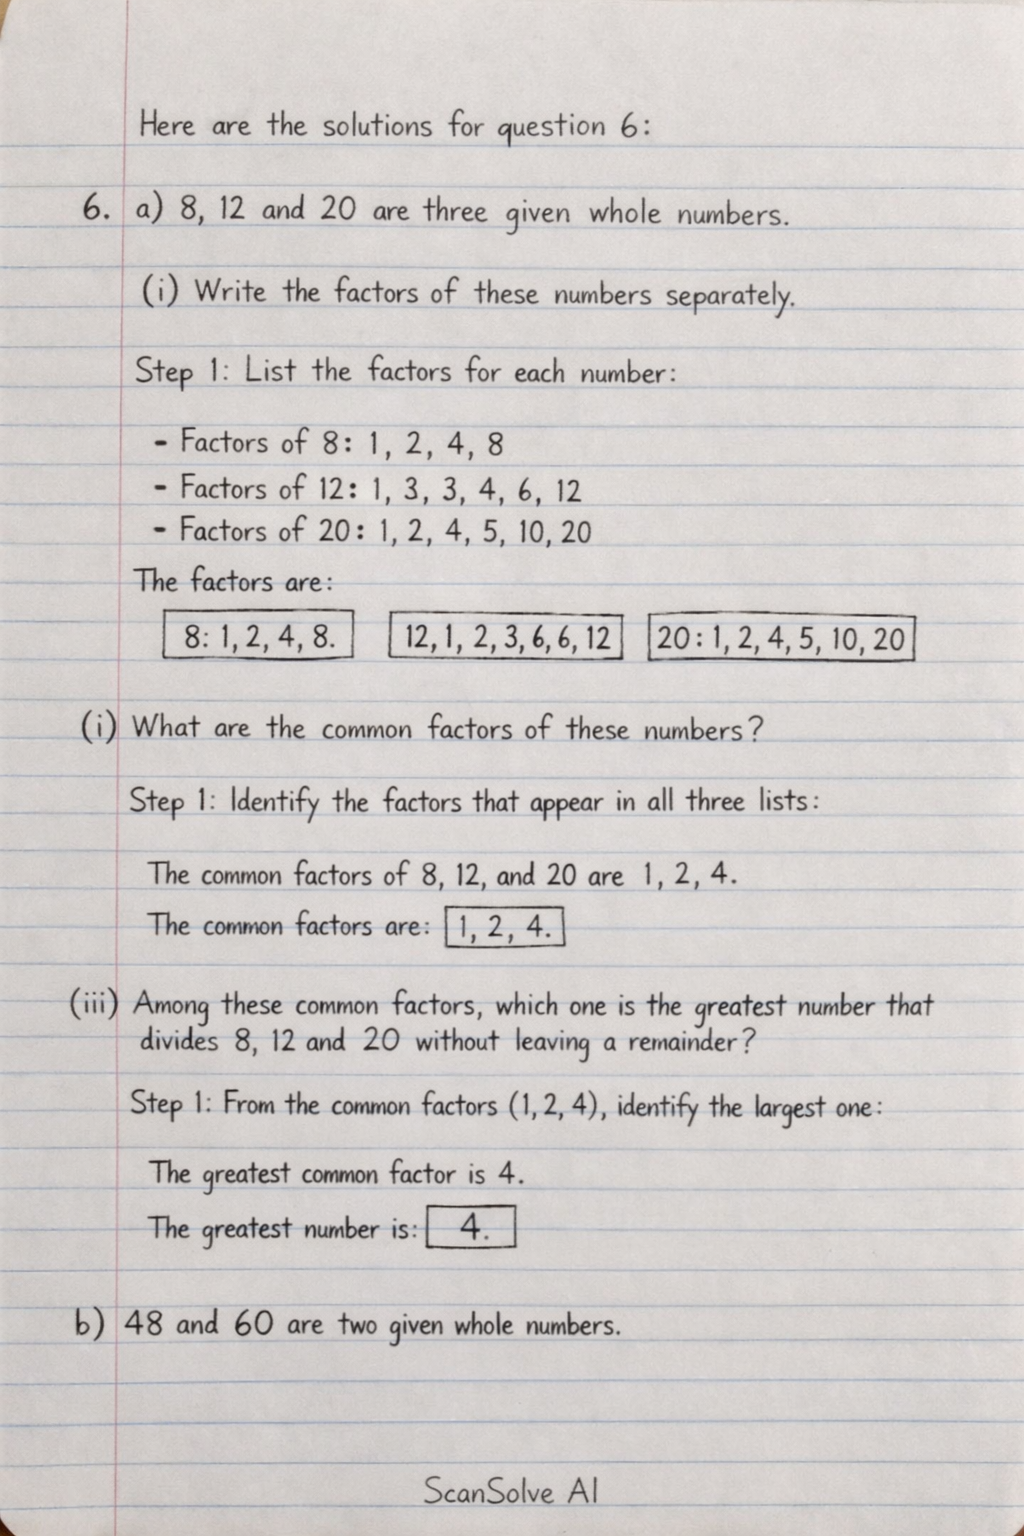 Here are the solutions for question 6:
6. a) 8, 12 and 20 are three given whole numbers.
(i) Write the factors of these numbers separately.
Step 1: List the factors for each number:
- Factors of 8: 1, 2, 4, 8
- Factors of 12: 1, 3, 3, 4, 6, 12
- Factors of 20: 1, 2, 4, 5, 10, 20
The factors are:
8: 1, 2, 4, 8. 12, 1, 2, 3, 6, 6, 12 20: 1, 2, 4, 5, 10, 20
(i) What are the common factors of these numbers?
Step 1: Identify the factors that appear in all three lists:
The common factors of 8, 12, and 20 are 1, 2, 4.
The common factors are: 1, 2, 4.
(iii) Among these common factors, which one is the greatest number that
divides 8, 12 and 20 without leaving a remainder?
Step 1: From the common factors (1, 2, 4), identify the largest one:
The greatest common factor is 4.
The greatest number is: 4.
b) 48 and 60 are two given whole numbers.
ScanSolve AI